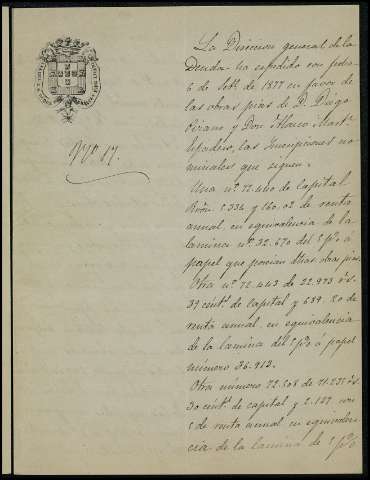 Nº 17.
La Direccion general de la
Deuda ha espedido con fecha
6 de Sete. de 1877 en favor de
las obras pias de D. Diego
y Don Marco Mart.
las Inscripciones no-
minales que siguen.
Una nº 72.440 de capital
Rvón. 5.334 y 160.02 de renta
anual, en equivalencia de la
lamina nº 32.670 del 5 p% á
papel que poseian dhas. obras pias.
Otra nº 72.443 de 22.973 rs.
39 cents. de capital y 689.20 de
renta anual, en equivalencia
de la lamina del 5 p% á papel
número 36.913.
Otra número 72.508 de 71.237 rs.
30 cents. de capital y 2.137 con
de renta anual en equivalen-
cia de la lamina de 5 p%